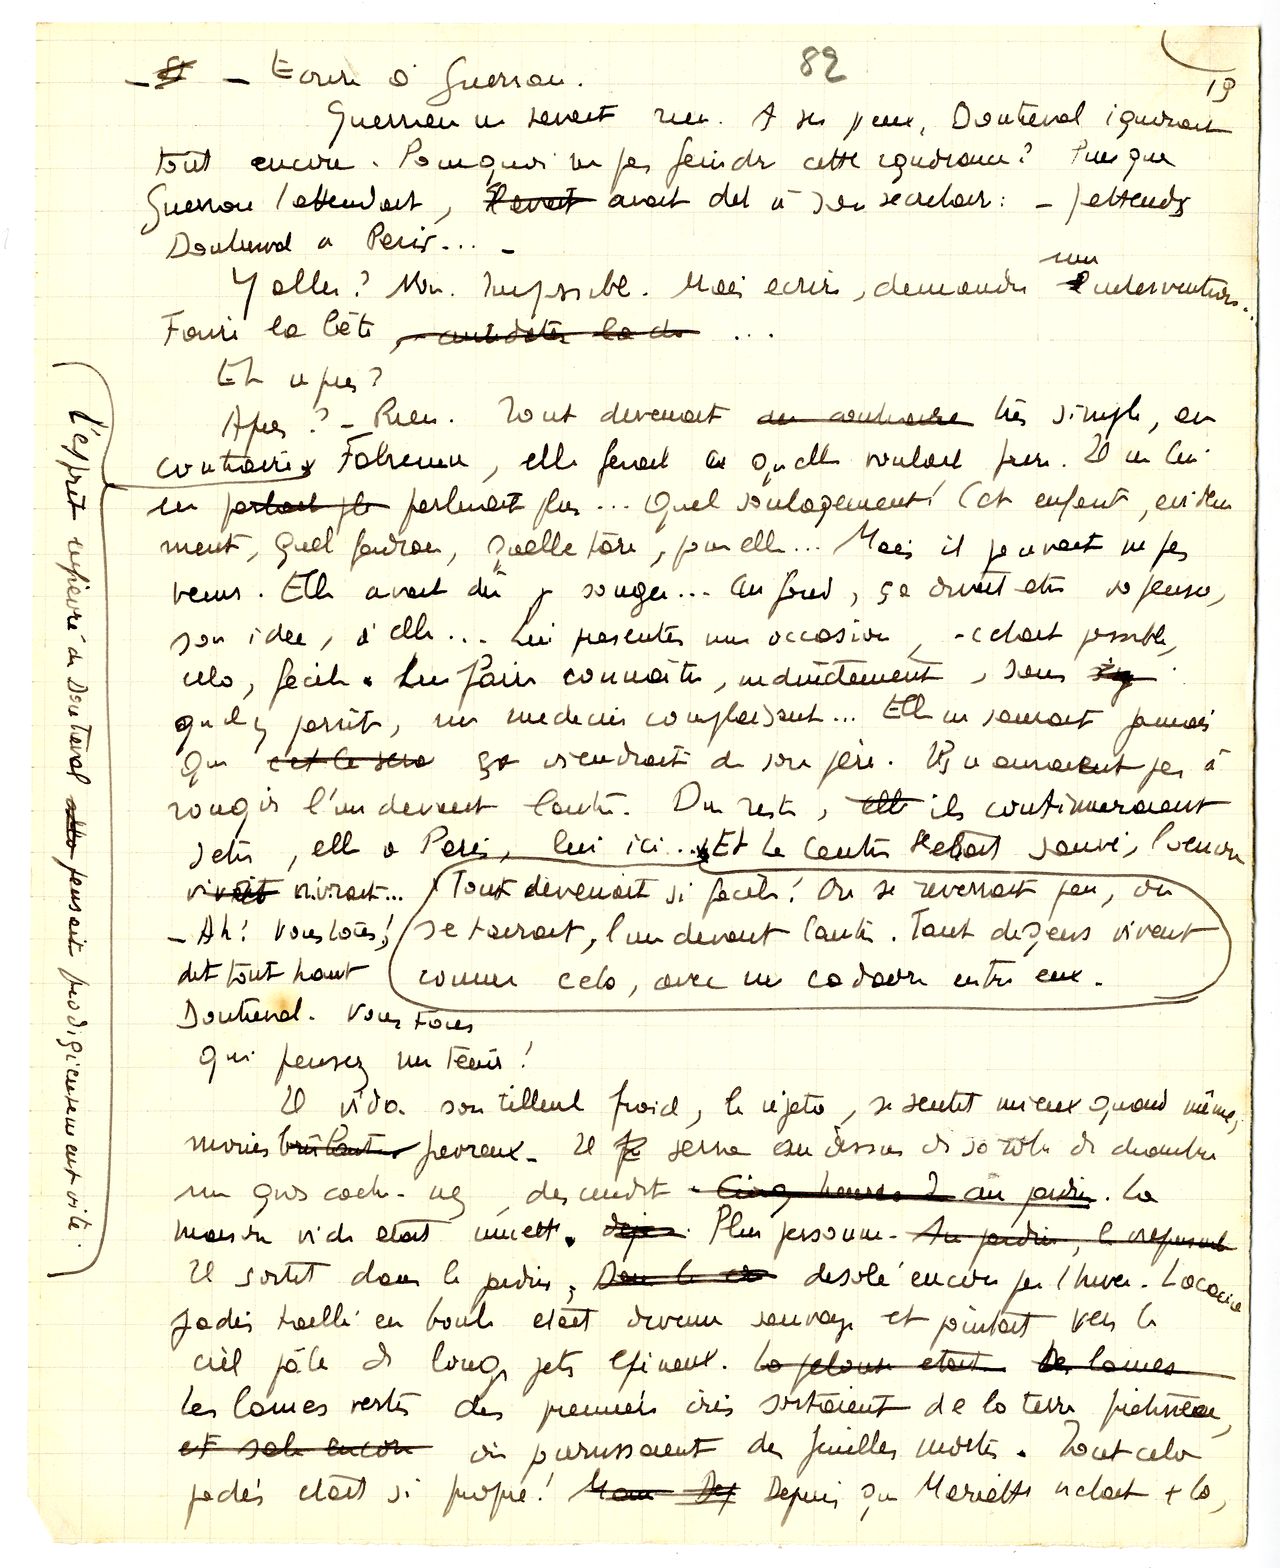 82
19
- Ecrire à Guerran.
Guerran ne savait rien. A ses yeux, Doutreval ignorait
tout encore. Pourquoi ne pas feindre cette ignorance? Puisque
Guerran l'attendait, avait dit à son secrétaire: - J'attends
Doutreval à Paris... -
Y aller? Non. Impossible. Mais écrire, demander une intervention...
Faire la bête ...
Et après?
Après? - Rien. Tout devenait très simple, au
contraire, Fabienne, elle ferait ce qu'elle voulait faire. Il ne lui
en parlerait plus... Quel soulagement! Cet enfant, evidem
ment, quel fardeau, quelle tare, pour elle... Mais il pouvait ne pas
venir. Elle avait dû y songer... Au fond, ça devait etre sa pensée,
son idée, à elle... Lui presenter une occasion, - c'etait possible,
cela, facile. Lui faire connaître, indirectement, sans
qu'il y parût, un medecin complaisant... Elle ne saurait jamais
que ça viendrait de son père. Ils n'auraient pas à
rougir l'un devant l'autre. Du reste, ils continueraient
seuls, elle à Paris, lui ici... Et le Centre Hebert sauvé, l'oeuvre
vivrait... Tout devenait si facile! On se reverrait peu, on
- Ah! Vous tous! se tairait, l'un devant l'autre. Tant de gens vivent
dit tout haut comme cela, avec un cadavre entre eux.
Doutreval. Vous tous
qui pensez me tenir!
Il vida son tilleul froid, le rejeta, se sentit mieux quand même,
moins fievreux. Il serra au dessus de sa robe de chambre
un gros cache-nez, descendit. La
maison vide etait muette. Plus personne.
Il sortit dans le jardin, desolé encore par l'hiver. L'acacia
jadis taillé en boule etait devenu sauvage et pointait vers le
ciel pâle de longs jets epineux.
Les lames vertes des premiers iris sortaient de la terre pietinée,
où pourrissaient des feuilles mortes. Tout cela
jadis etait si propre! Depuis que Mariette n'etait + là,
L'esprit enfievré de Doutreval pensait prodigieusement vite.